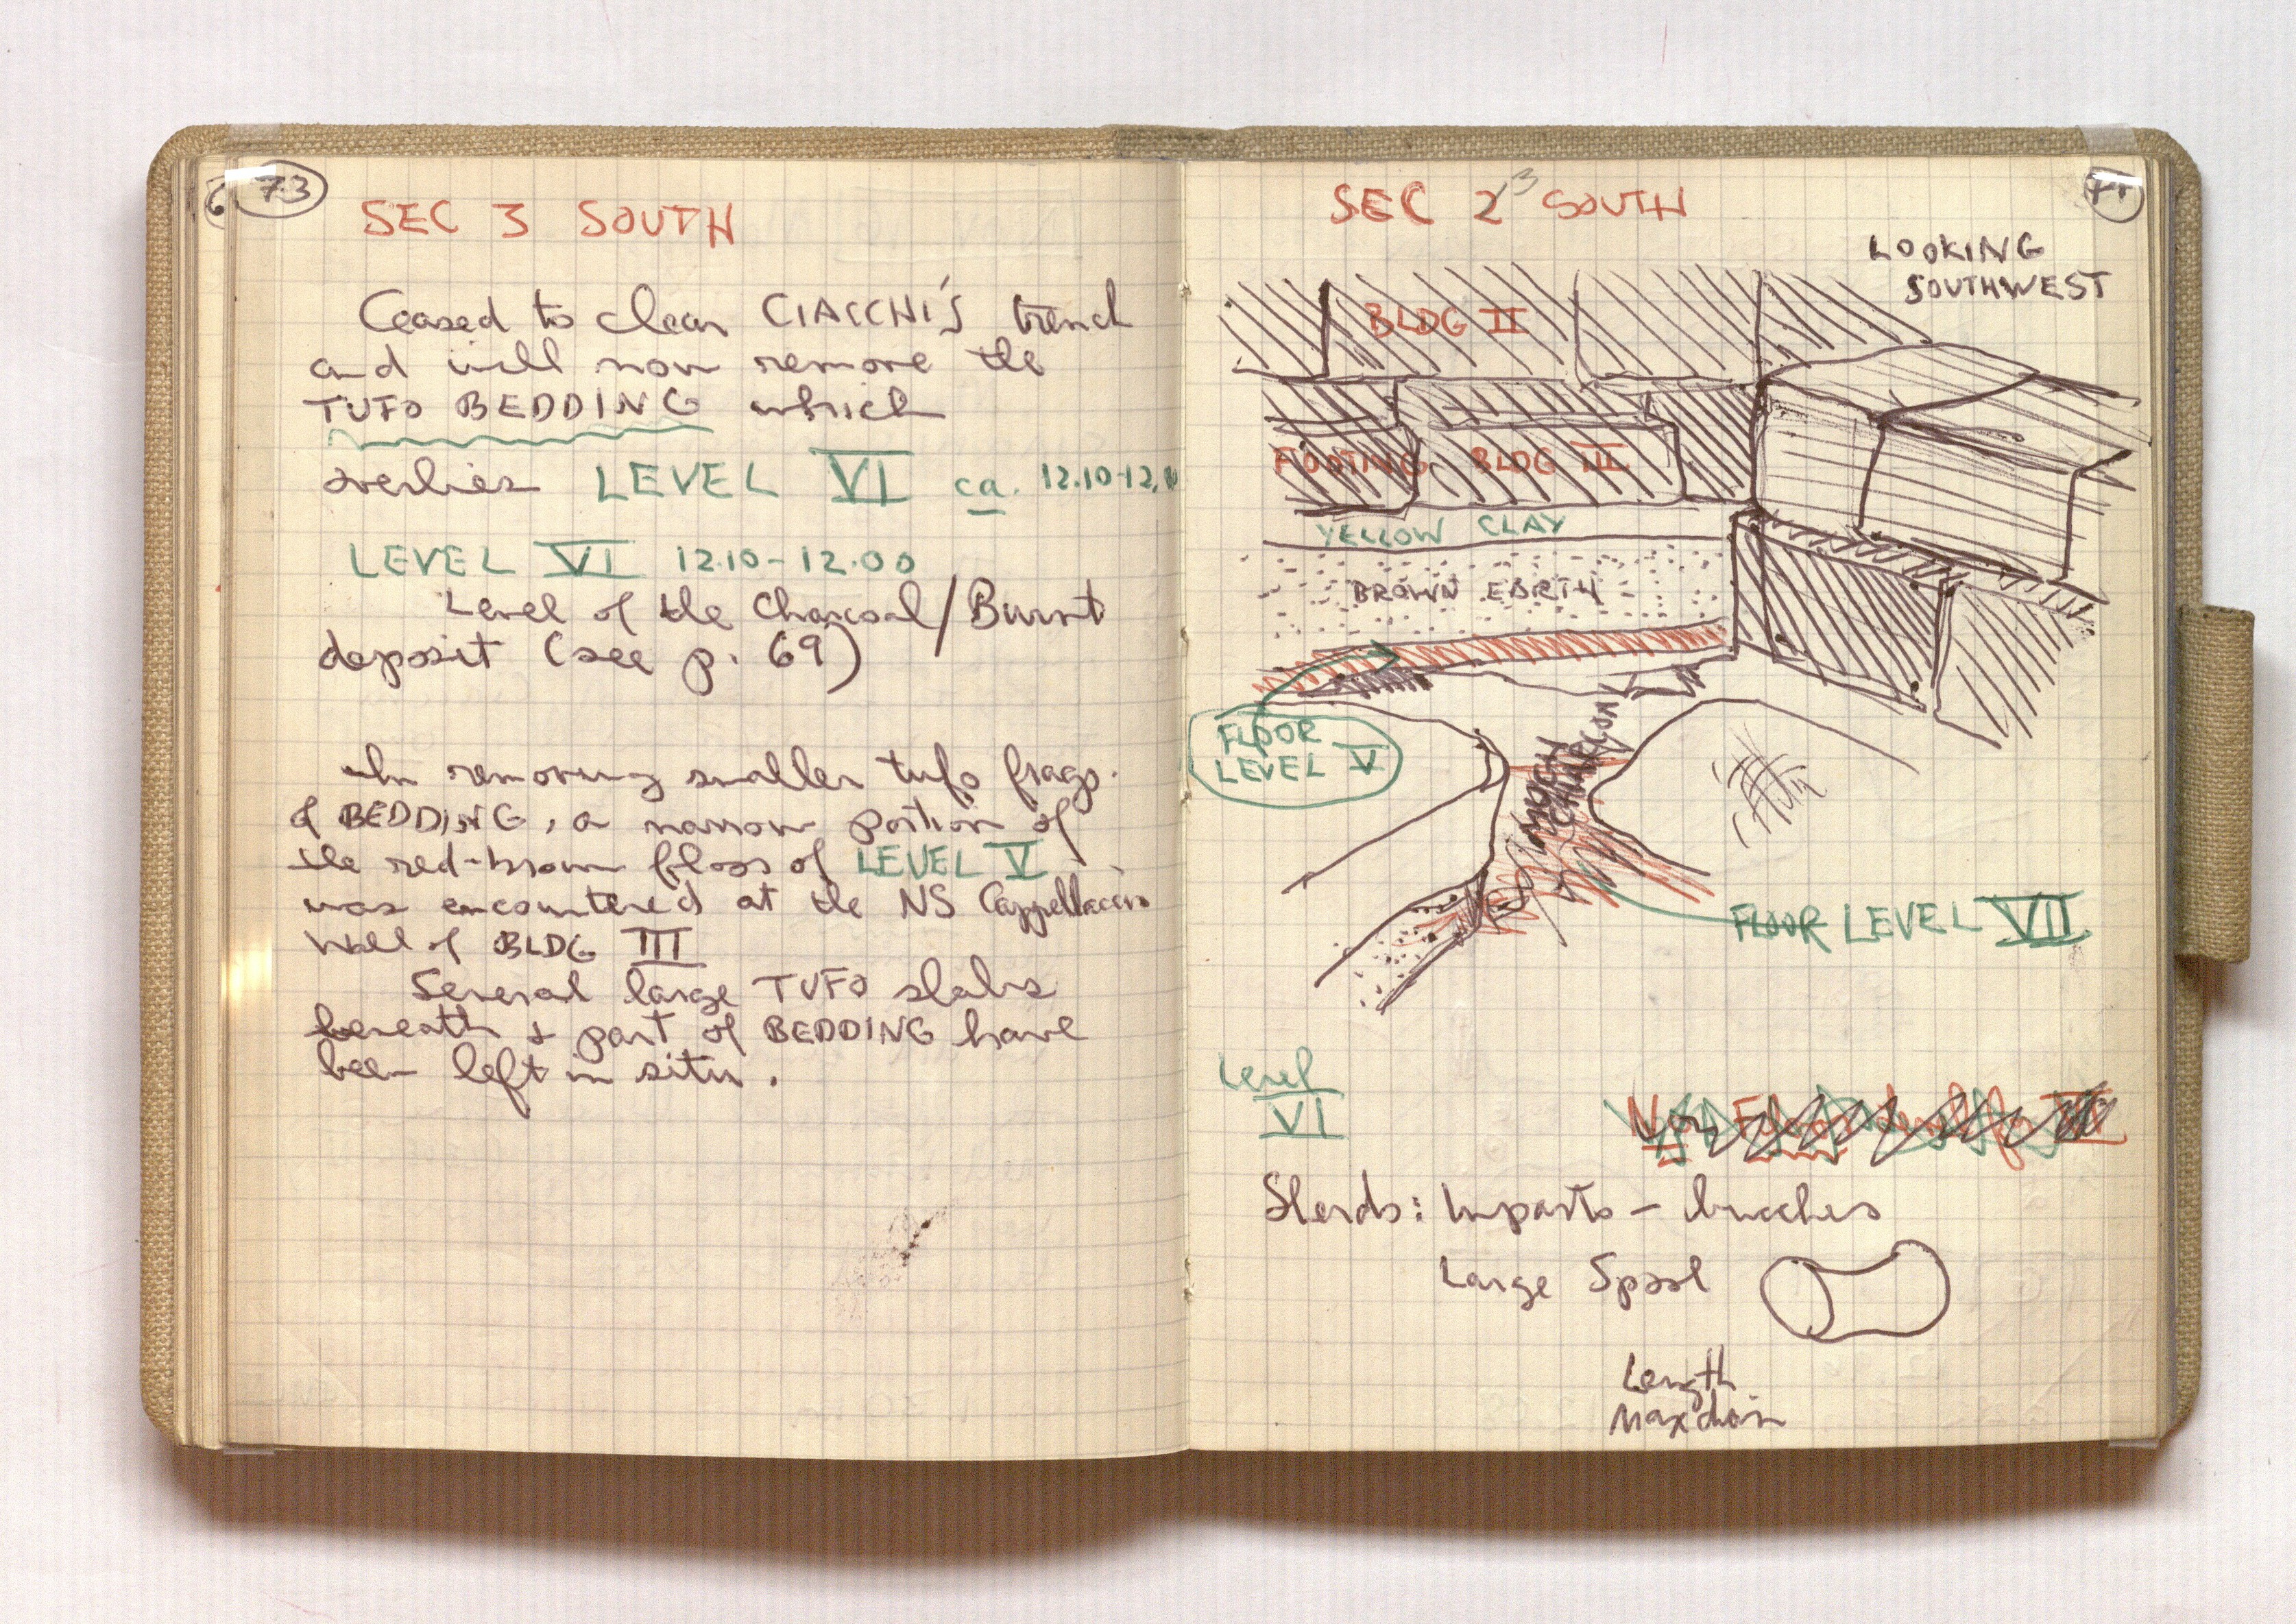 73
SEC 3 SOUTH
Ceased to clear CIACCHI'S trench
and will now remove the
TUFO BEDDING which
overlies LEVEL VI ca. 12.10-12.
LEVEL VI 12.10-12.00
Level of the Charcoal/Burnt
deposit (see p. 69)
In removing smaller tufo frags.
of BEDDING, a narrow portion of
the red-brown floor of LEVEL V
was encountered at the NS Cappellaccio
Wall of BLDG III
Several large TUFO slabs
beneath & part of BEDDING have
been left in situ.
SEC 2 3 SOUTH
LOOKING
SOUTHWEST
BLDG II
FOOTING BLDG III
YELLOW CLAY
BROWN EARTH
FLOOR
LEVEL V
MUCH
CHARCOAL
FLOOR LEVEL VII
Level
VI
Sherds: Impasto - bucchero
Large Spool
Length
Max diam